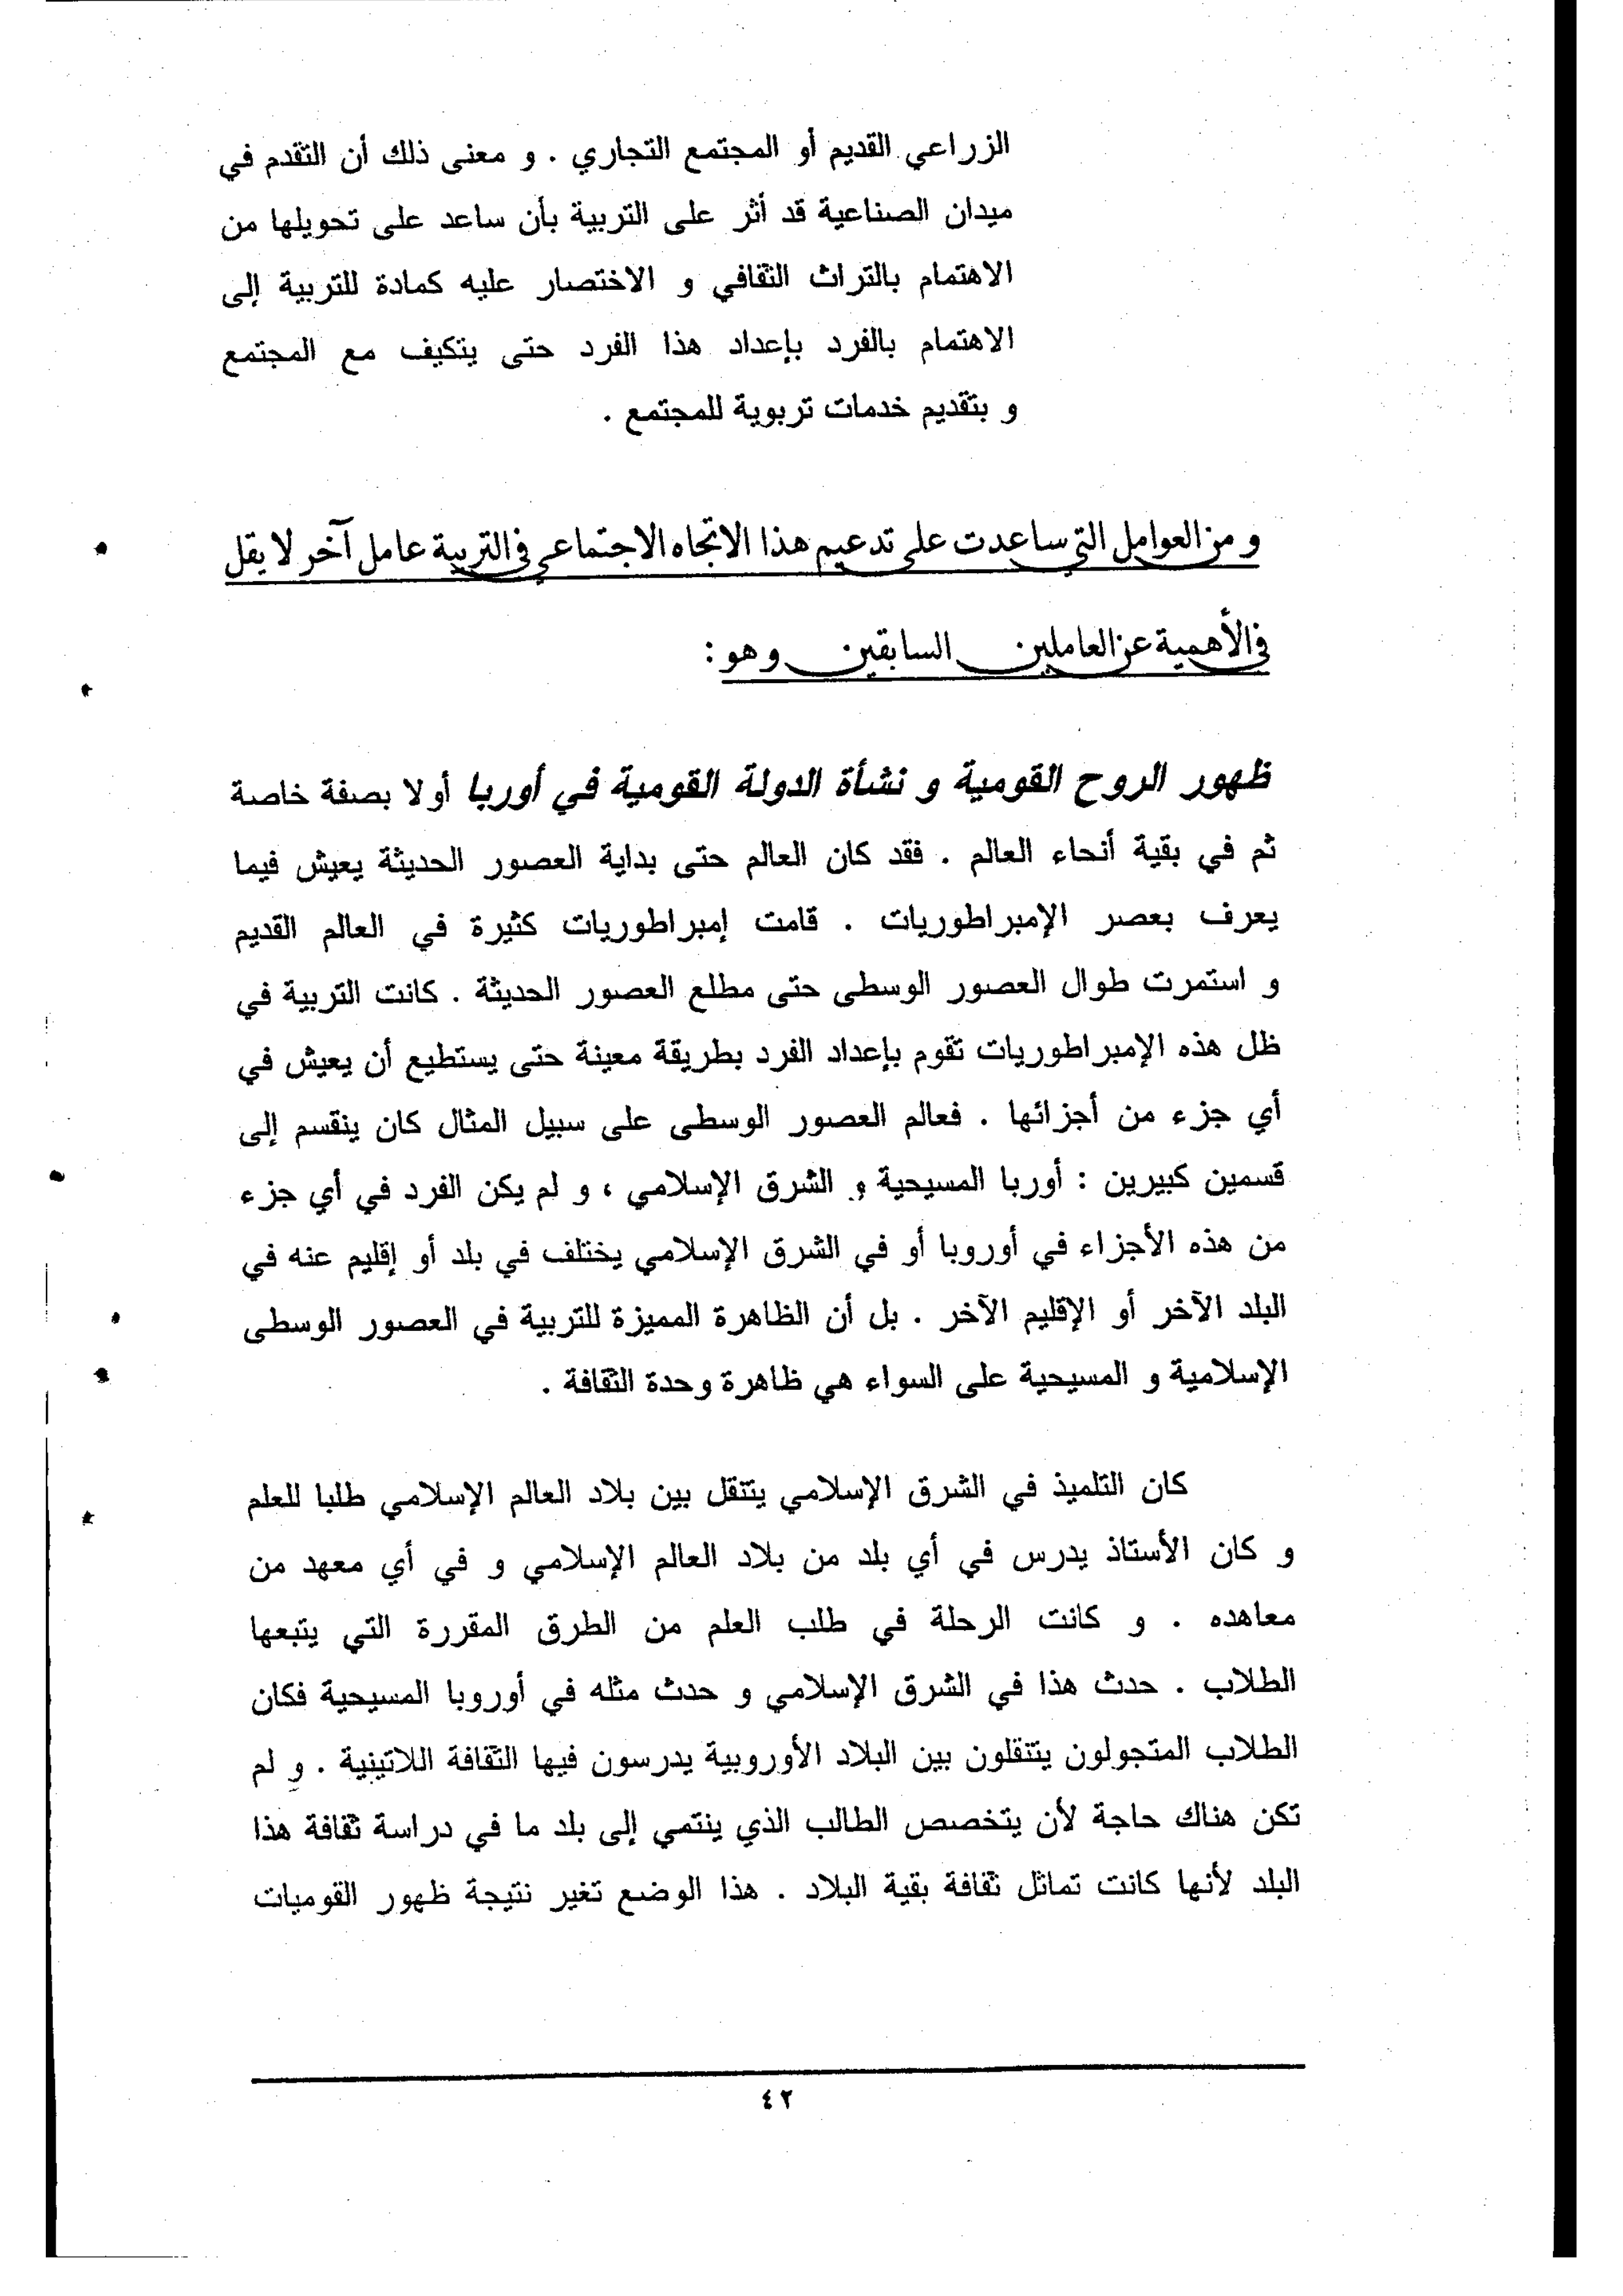 الزراعي القديم أو المجتمع التجاري . و معنى ذلك أن التقدم في
ميدان الصناعية قد أثر على التربية بأن ساعد على تحويلها من
الاهتمام بالتراث الثقافي و الاختصار عليه كمادة للتربية إلى
الاهتمام بالفرد بإعداد هذا الفرد حتى يتكيف مع المجتمع
و بتقديم خدمات تربوية للمجتمع .
و من العوامل التي ساعدت على تدعيم هذا الاتجاه الاجتماعي في التربية عامل آخر لا يقل
في الأهمية عن العاملين السابقين وهو :
ظهور الروح القومية و نشأة الدولة القومية في أوربا أولا بصفة خاصة
ثم في بقية أنحاء العالم . فقد كان العالم حتى بداية العصور الحديثة يعيش فيما
يعرف بعصر الإمبراطوريات . قامت إمبراطوريات كثيرة في العالم القديم
و استمرت طوال العصور الوسطى حتى مطلع العصور الحديثة . كانت التربية في
ظل هذه الإمبراطوريات تقوم بإعداد الفرد بطريقة معينة حتى يستطيع أن يعيش في
أي جزء من أجزائها . فعالم العصور الوسطى على سبيل المثال كان ينقسم إلى
قسمين كبيرين : أوربا المسيحية و الشرق الإسلامي ، و لم يكن الفرد في أي جزء
من هذه الأجزاء في أوروبا أو في الشرق الإسلامي يختلف في بلد أو إقليم عنه في
البلد الآخر أو الإقليم الآخر . بل أن الظاهرة المميزة للتربية في العصور الوسطى
الإسلامية و المسيحية على السواء هي ظاهرة وحدة الثقافة .
كان التلميذ في الشرق الإسلامي يتنقل بين بلاد العالم الإسلامي طلبا للعلم
و كان الأستاذ يدرس في أي بلد من بلاد العالم الإسلامي و في أي معهد من
معاهده . و كانت الرحلة في طلب العلم من الطرق المقررة التي يتبعها
الطلاب . حدث هذا في الشرق الإسلامي و حدث مثله في أوروبا المسيحية فكان
الطلاب المتجولون يتنقلون بين البلاد الأوروبية يدرسون فيها الثقافة اللاتينية . و لم
تكن هناك حاجة لأن يتخصص الطالب الذي ينتمي إلى بلد ما في دراسة ثقافة هذا
البلد لأنها كانت تماثل ثقافة بقية البلاد . هذا الوضع تغير نتيجة ظهور القوميات
٤٢